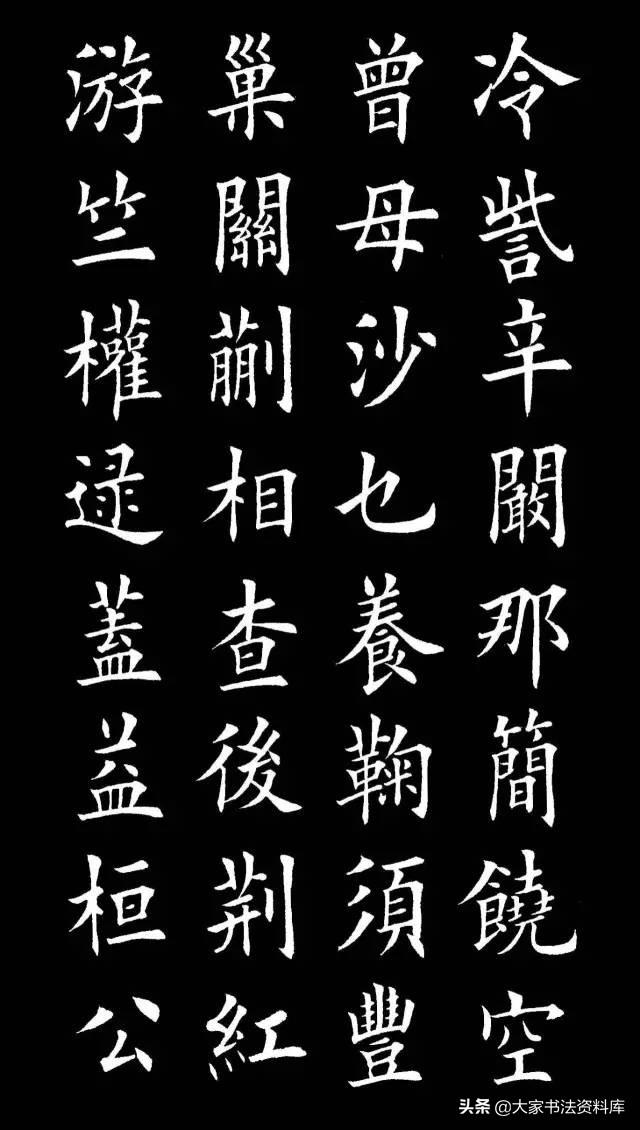 冷訾辛闞那簡饒空
曾母沙乜養鞠須豐
巢關蒯相查後荊紅
游竺權逯蓋益桓公
头条 @大家书法资料库